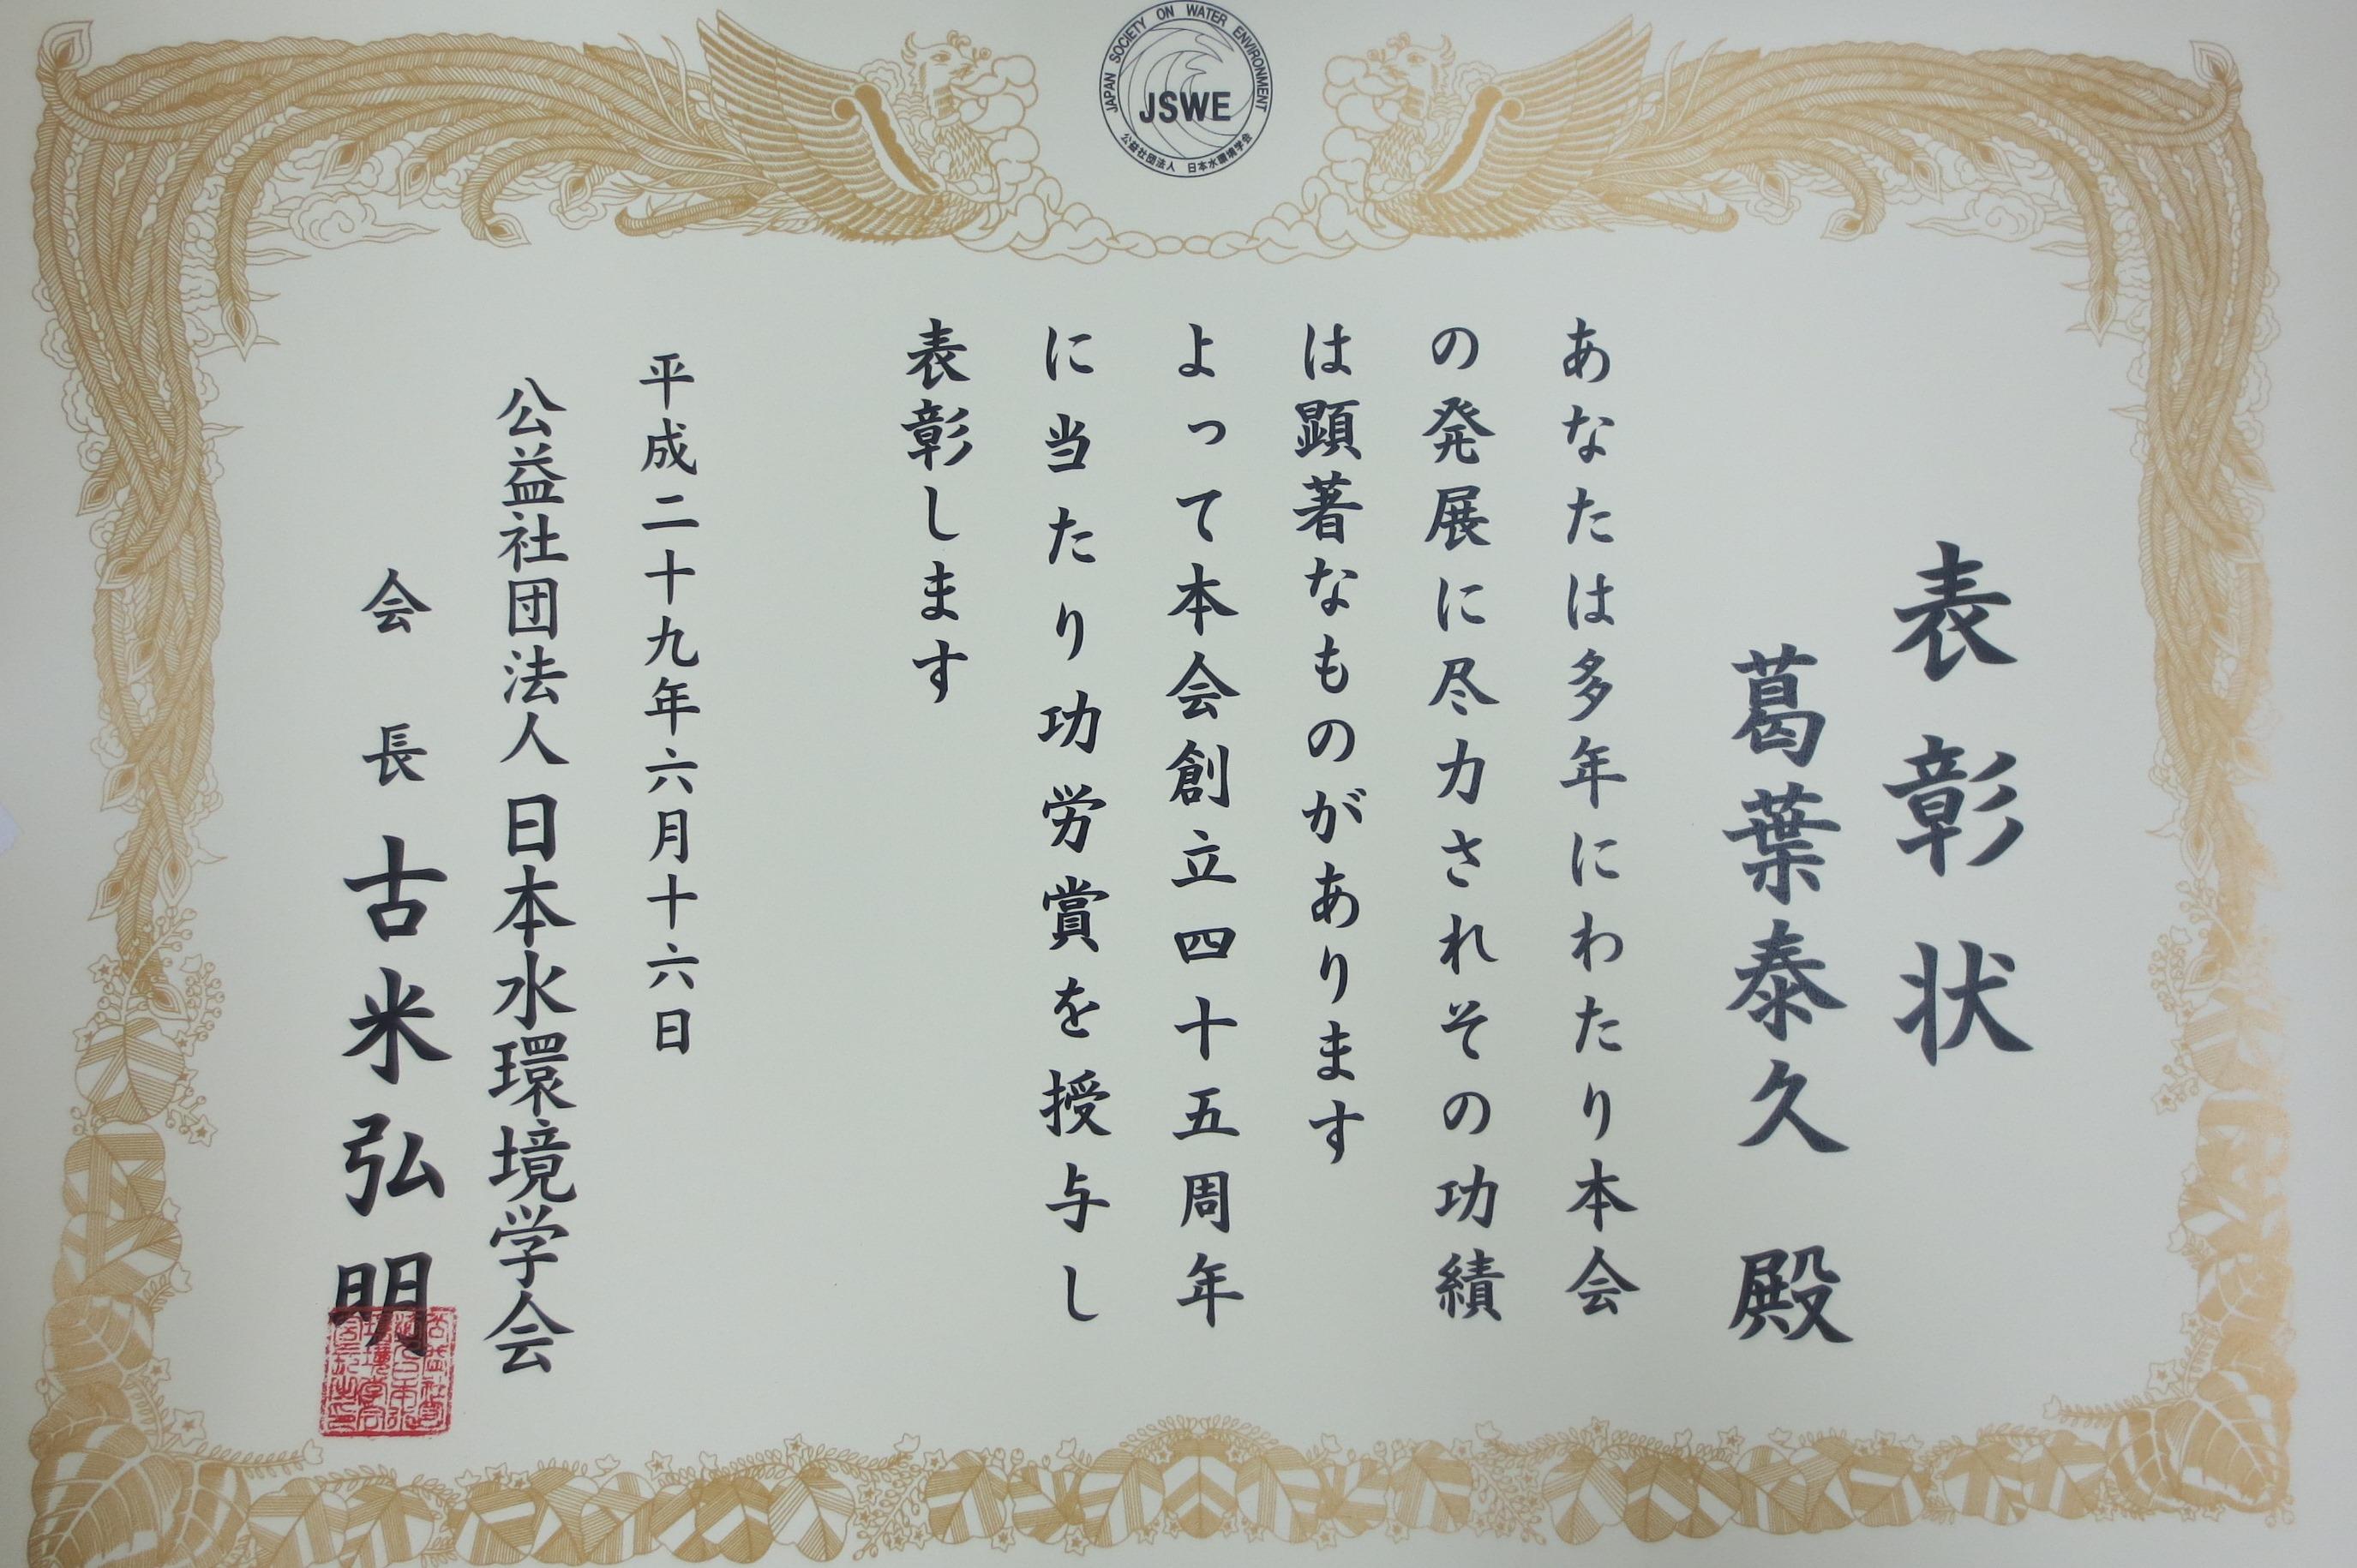 JAPAN SOCIETY ON WATER ENVIRONMENT
JSWE
公益社団法人 日本水環境学会
表彰状
葛葉泰久 殿
あなたは多年にわたり本会
の発展に尽力されその功績
は顕著なものがあります
よって本会創立四十五周年
に当たり功労賞を授与し
表彰します
平成二十九年六月十六日
公益社団法人日本水環境学会
会長 古米弘明